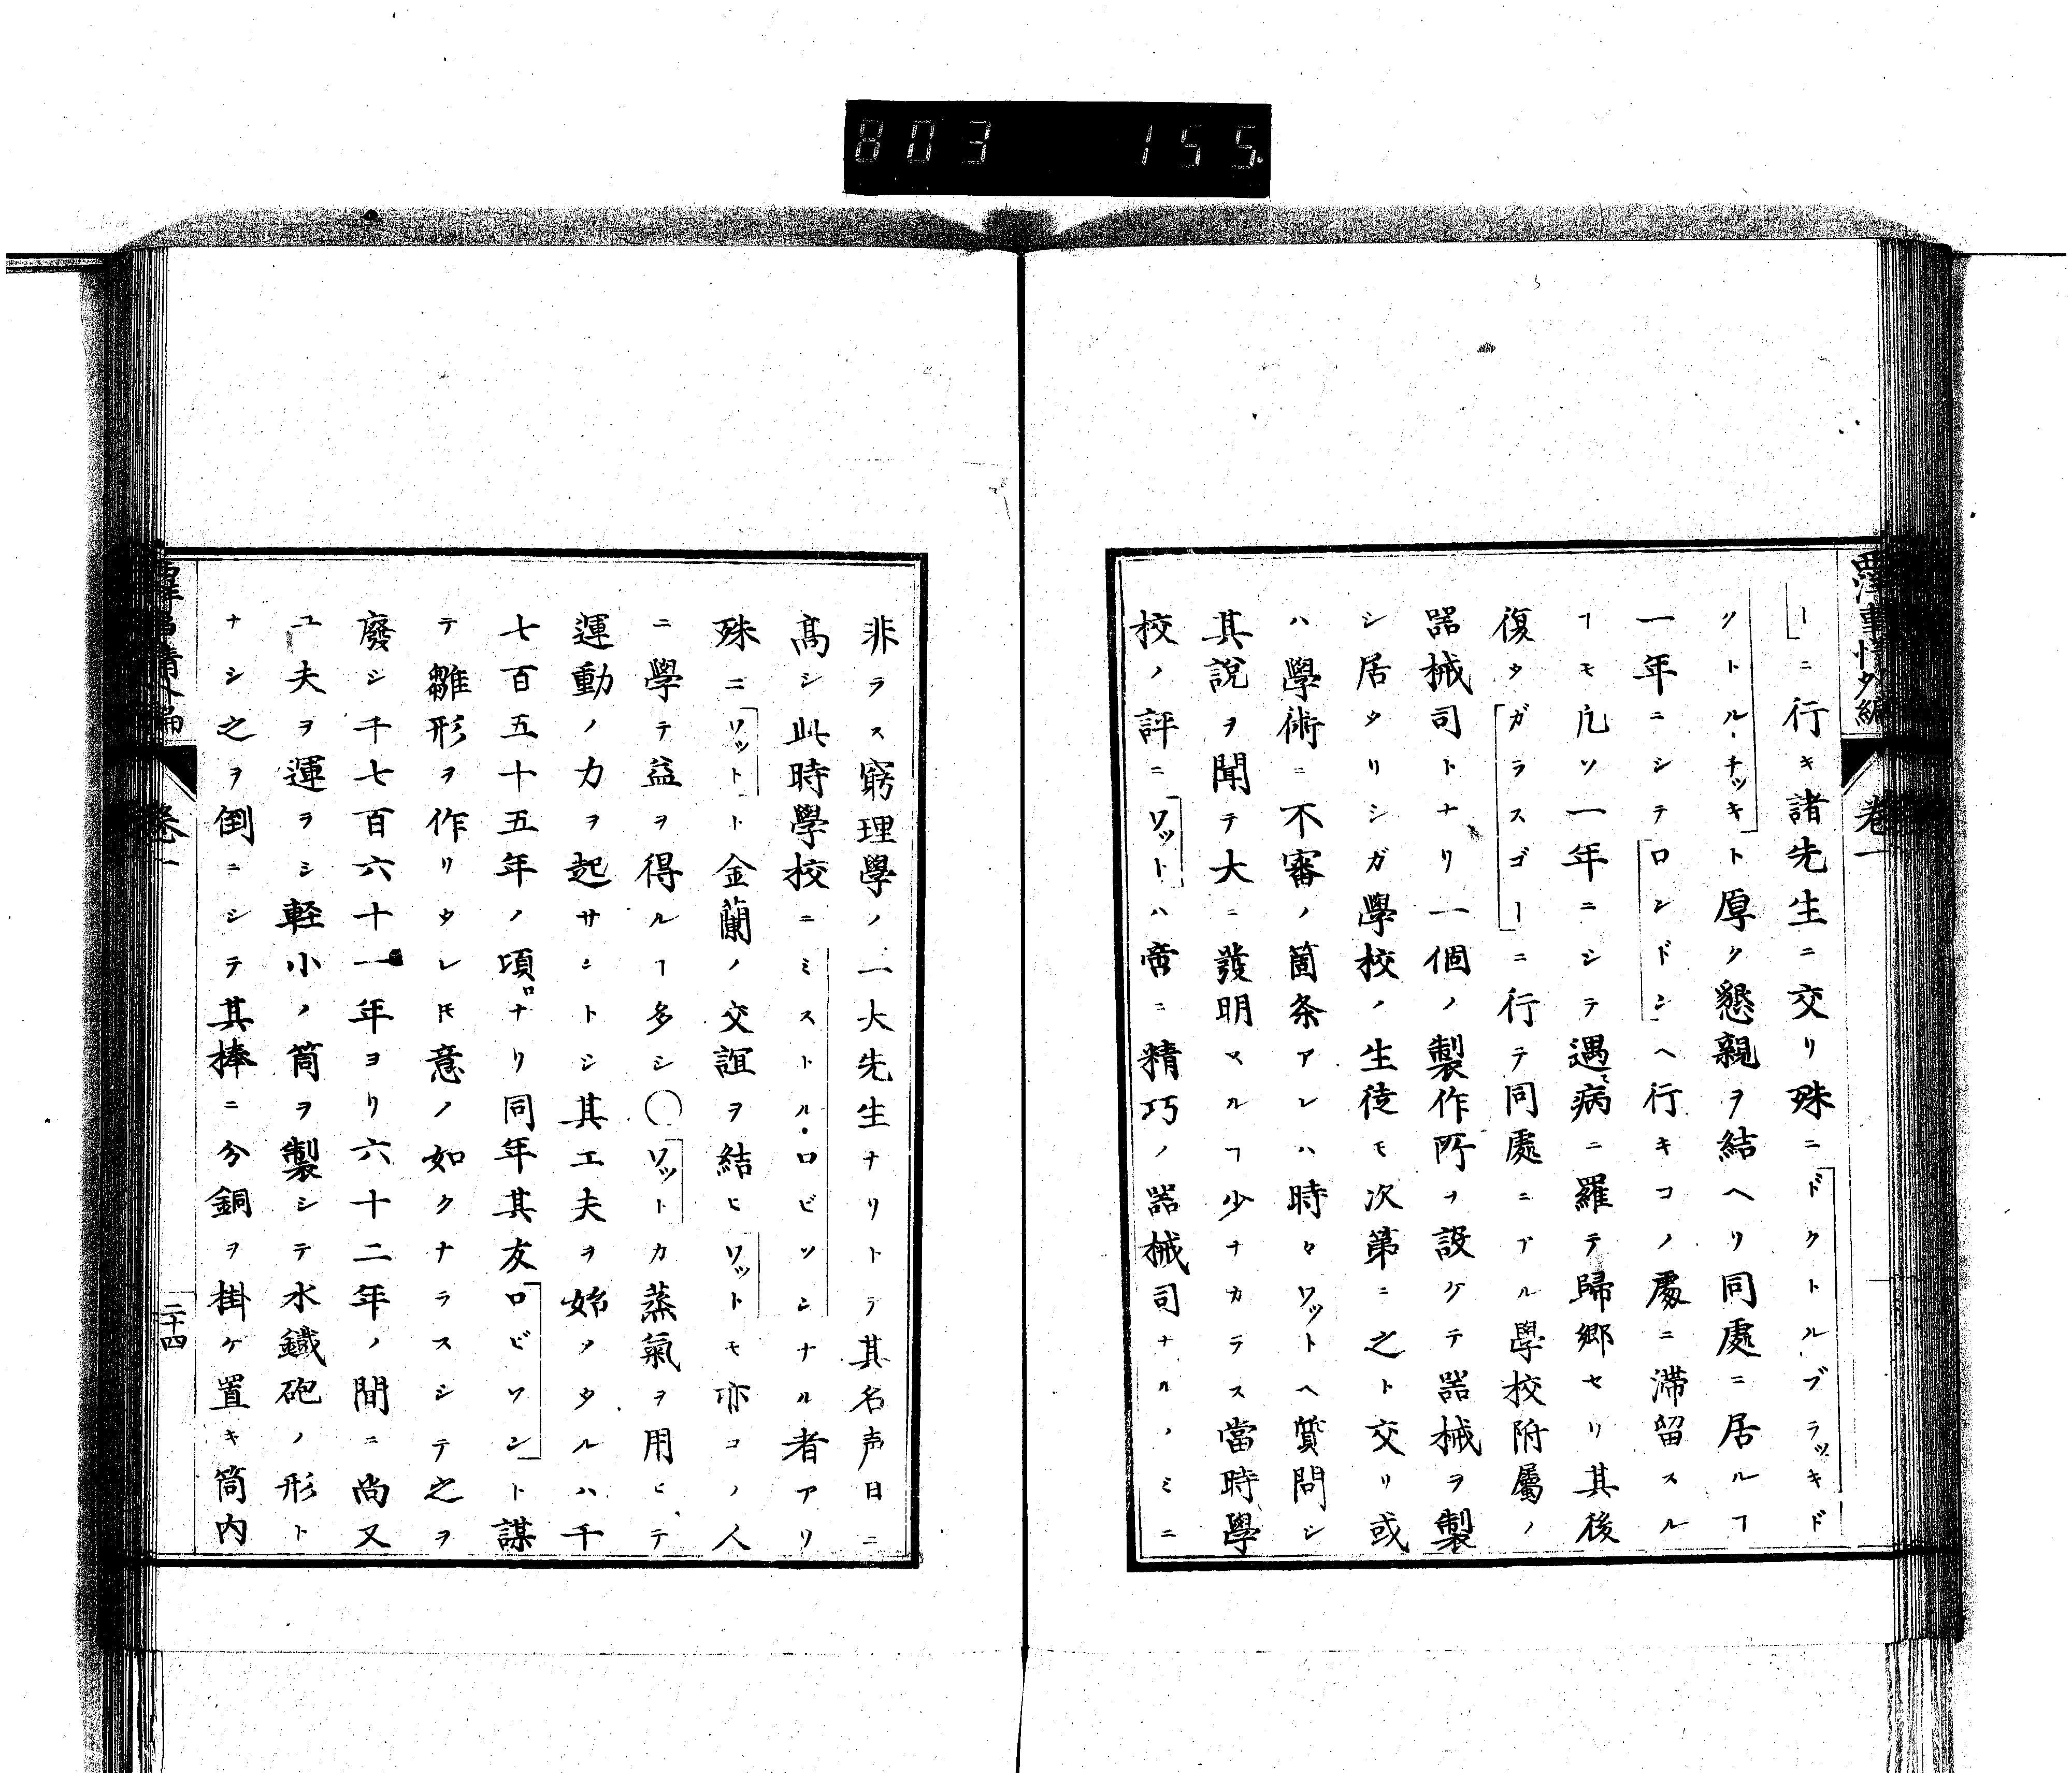 803 155.
西洋事情外編 卷一
ーニ行キ諸先生ニ交リ殊ニドクトルブラッキド
クトル・チッキト厚ク懇親ヲ結ヘリ同處ニ居ルヿ
一年ニシテロンドンヘ行キコノ處ニ滞留スル
ヿモ凡ソ一年ニシテ遇病ニ羅テ歸郷セリ其後
復タガラスゴーニ行テ同處ニアル學校附屬ノ
器械司トナリ一個ノ製作所ヲ設ケテ器械ヲ製
シ居タリシガ學校ノ生徒モ次第ニ之ト交リ或
ハ學術ニ不審ノ箇条アレハ時々ワットヘ質問シ
其說ヲ聞テ大ニ發明スルヿ少ナカラス當時學
校ノ評ニワットハ啻ニ精巧ノ器械司ナルノミニ
非ラス窮理學ノ一大先生ナリトテ其名声日ニ
髙シ此時學校ニミストル・ロビソンナル者アリ
殊ニワットト金蘭ノ交誼ヲ結ヒワットモ亦コノ人
ニ學テ益ヲ得ルヿ多シ〇ワットカ蒸氣ヲ用ヒテ
運動ノ力ヲ起サントシ其工夫ヲ始メタルハ千
七百五十五年ノ頃ロナリ同年其友ロビソント謀
テ雛形ヲ作リタレ𪜈意ノ如クナラスシテ之ヲ
廢シ千七百六十一年ヨリ六十二年ノ間ニ尚又
工夫ヲ運ラシ軽小ノ筒ヲ製シテ水鐵砲ノ形ト
ナシ之ヲ倒ニシテ其棒ニ分銅ヲ掛ケ置キ筒内
西洋事情外編 卷一 二十四